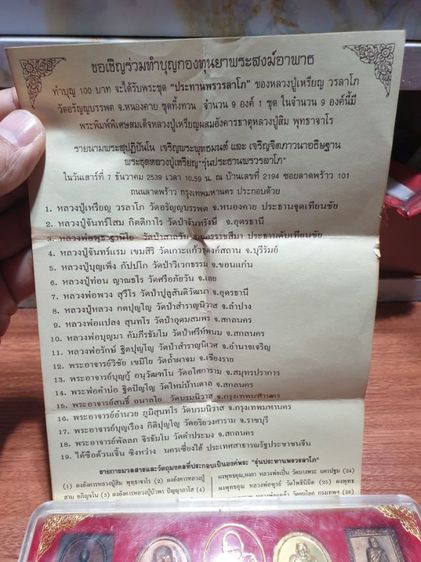 ขอเชิญร่วมทำบุญกองทุนยาพระสงฆ์อาพาธ
ทำบุญ 100 บาท จะได้รับพระชุด "ประทานพรวรลาโภ" ของหลวงปู่เหรียญ วรลาโภ
วัดอรัญญบรรพต จ.หนองคาย ชุดทิ้งทวน จำนวน 9 องค์ 1 ชุด ในจำนวน 9 องค์นี้มี
พระพิมพ์พิเศษสมเด็จหลวงปู่เหรียญผสมอังคารธาตุหลวงปู่สิม พุทธาจาโร
รายนามพระสุปฏิปันโน เจริญพระพุทธมนต์ และ เจริญจิตภาวนาอธิษฐาน
พระชุดหลวงปู่เหรียญ"รุ่นประธานพรวรลาโภ"
ในวันเสาร์ที่ 7 ธันวาคม 2539 เวลา 10.59 น. ณ บ้านเลขที่ 2194 ซอยลาดพร้าว 101
ถนนลาดพร้าว กรุงเทพมหานคร ประกอบด้วย
1. หลวงปู่เหรียญ วรลาโภ วัดอรัญญบรรพต จ.หนองคาย ประธานจุดเทียนชัย
2. หลวงปู่จันทร์โสม กิตติกาโร วัดป่านาสีดา จ.อุดรธานี
3. หลวงพ่อพุธ ฐานิโย วัดป่าสาลวัน จ.นครราชสีมา ประธานดับเทียนชัย
4. หลวงปู่จันทร์แรม เขมสิริ วัดเกาะแก้วธุดงค์สถาน จ.บุรีรัมย์
5. หลวงปู่บุญเพ็ง กัปปโก วัดป่าวิเวกธรรม จ.ขอนแก่น
6. หลวงปู่ท่อน ญาณธโร วัดศรีอภัยวัน จ.เลย
7. หลวงพ่อพวง สุวีโร วัดป่าปูลูสันติวัฒนา จ.อุดรธานี
8. หลวงปู่หลวง กตปุญโญ วัดป่าสำราญนิวาส จ.ลำปาง
9. หลวงพ่อแปลง สุนทโร วัดป่าอุดมสมพร จ.สกลนคร
10. หลวงพ่อบุญมา คัมภีรธัมโม วัดป่าสีห์พนม จ.สกลนคร
11. หลวงพ่อรักษ์ ฐิตปุญโญ วัดป่าสำราญนิเวศ จ.อำนาจเจริญ
12. พระอาจารย์วิชัย เขมิโย วัดถ้ำผาจม จ.เชียงราย
13. พระอาจารย์บุญกู้ อนุวัฑฒโน วัดอโศการาม จ.สมุทรปราการ
14. พระพ่อคำบ่อ ฐิตปัญโญ วัดใหม่บ้านตาล จ.สกลนคร
15. พระอาจารย์สนธิ์ อนาลโย วัดบรมนิวาส กรุงเทพมหานคร
16. พระอาจารย์อำนวย ภูมิสุนทโร วัดบรมนิวาส กรุงเทพมหานคร
17. พระอาจารย์บุญเรือง กิติปุญโญ วัดอริยวงศาราม จ.ราชบุรี
18. พระอาจารย์พัลลภ จิรธัมโม วัดคำประมง จ.สกลนคร
19. ได้ซือต้วนเซ็ง ซิงหว่าง นครเซี่ยงไฮ้ ประเทศสาธารณรัฐประชาชนจีน
รายการมวลสารและวัตถุมงคลที่ประกอบเป็นองค์พระ "รุ่นประทานพรวรลาโภ"
(1) ผงอังคารหลวงปู่สิม พุทธาจาโร (2) ผงอังคารหลวงปู่